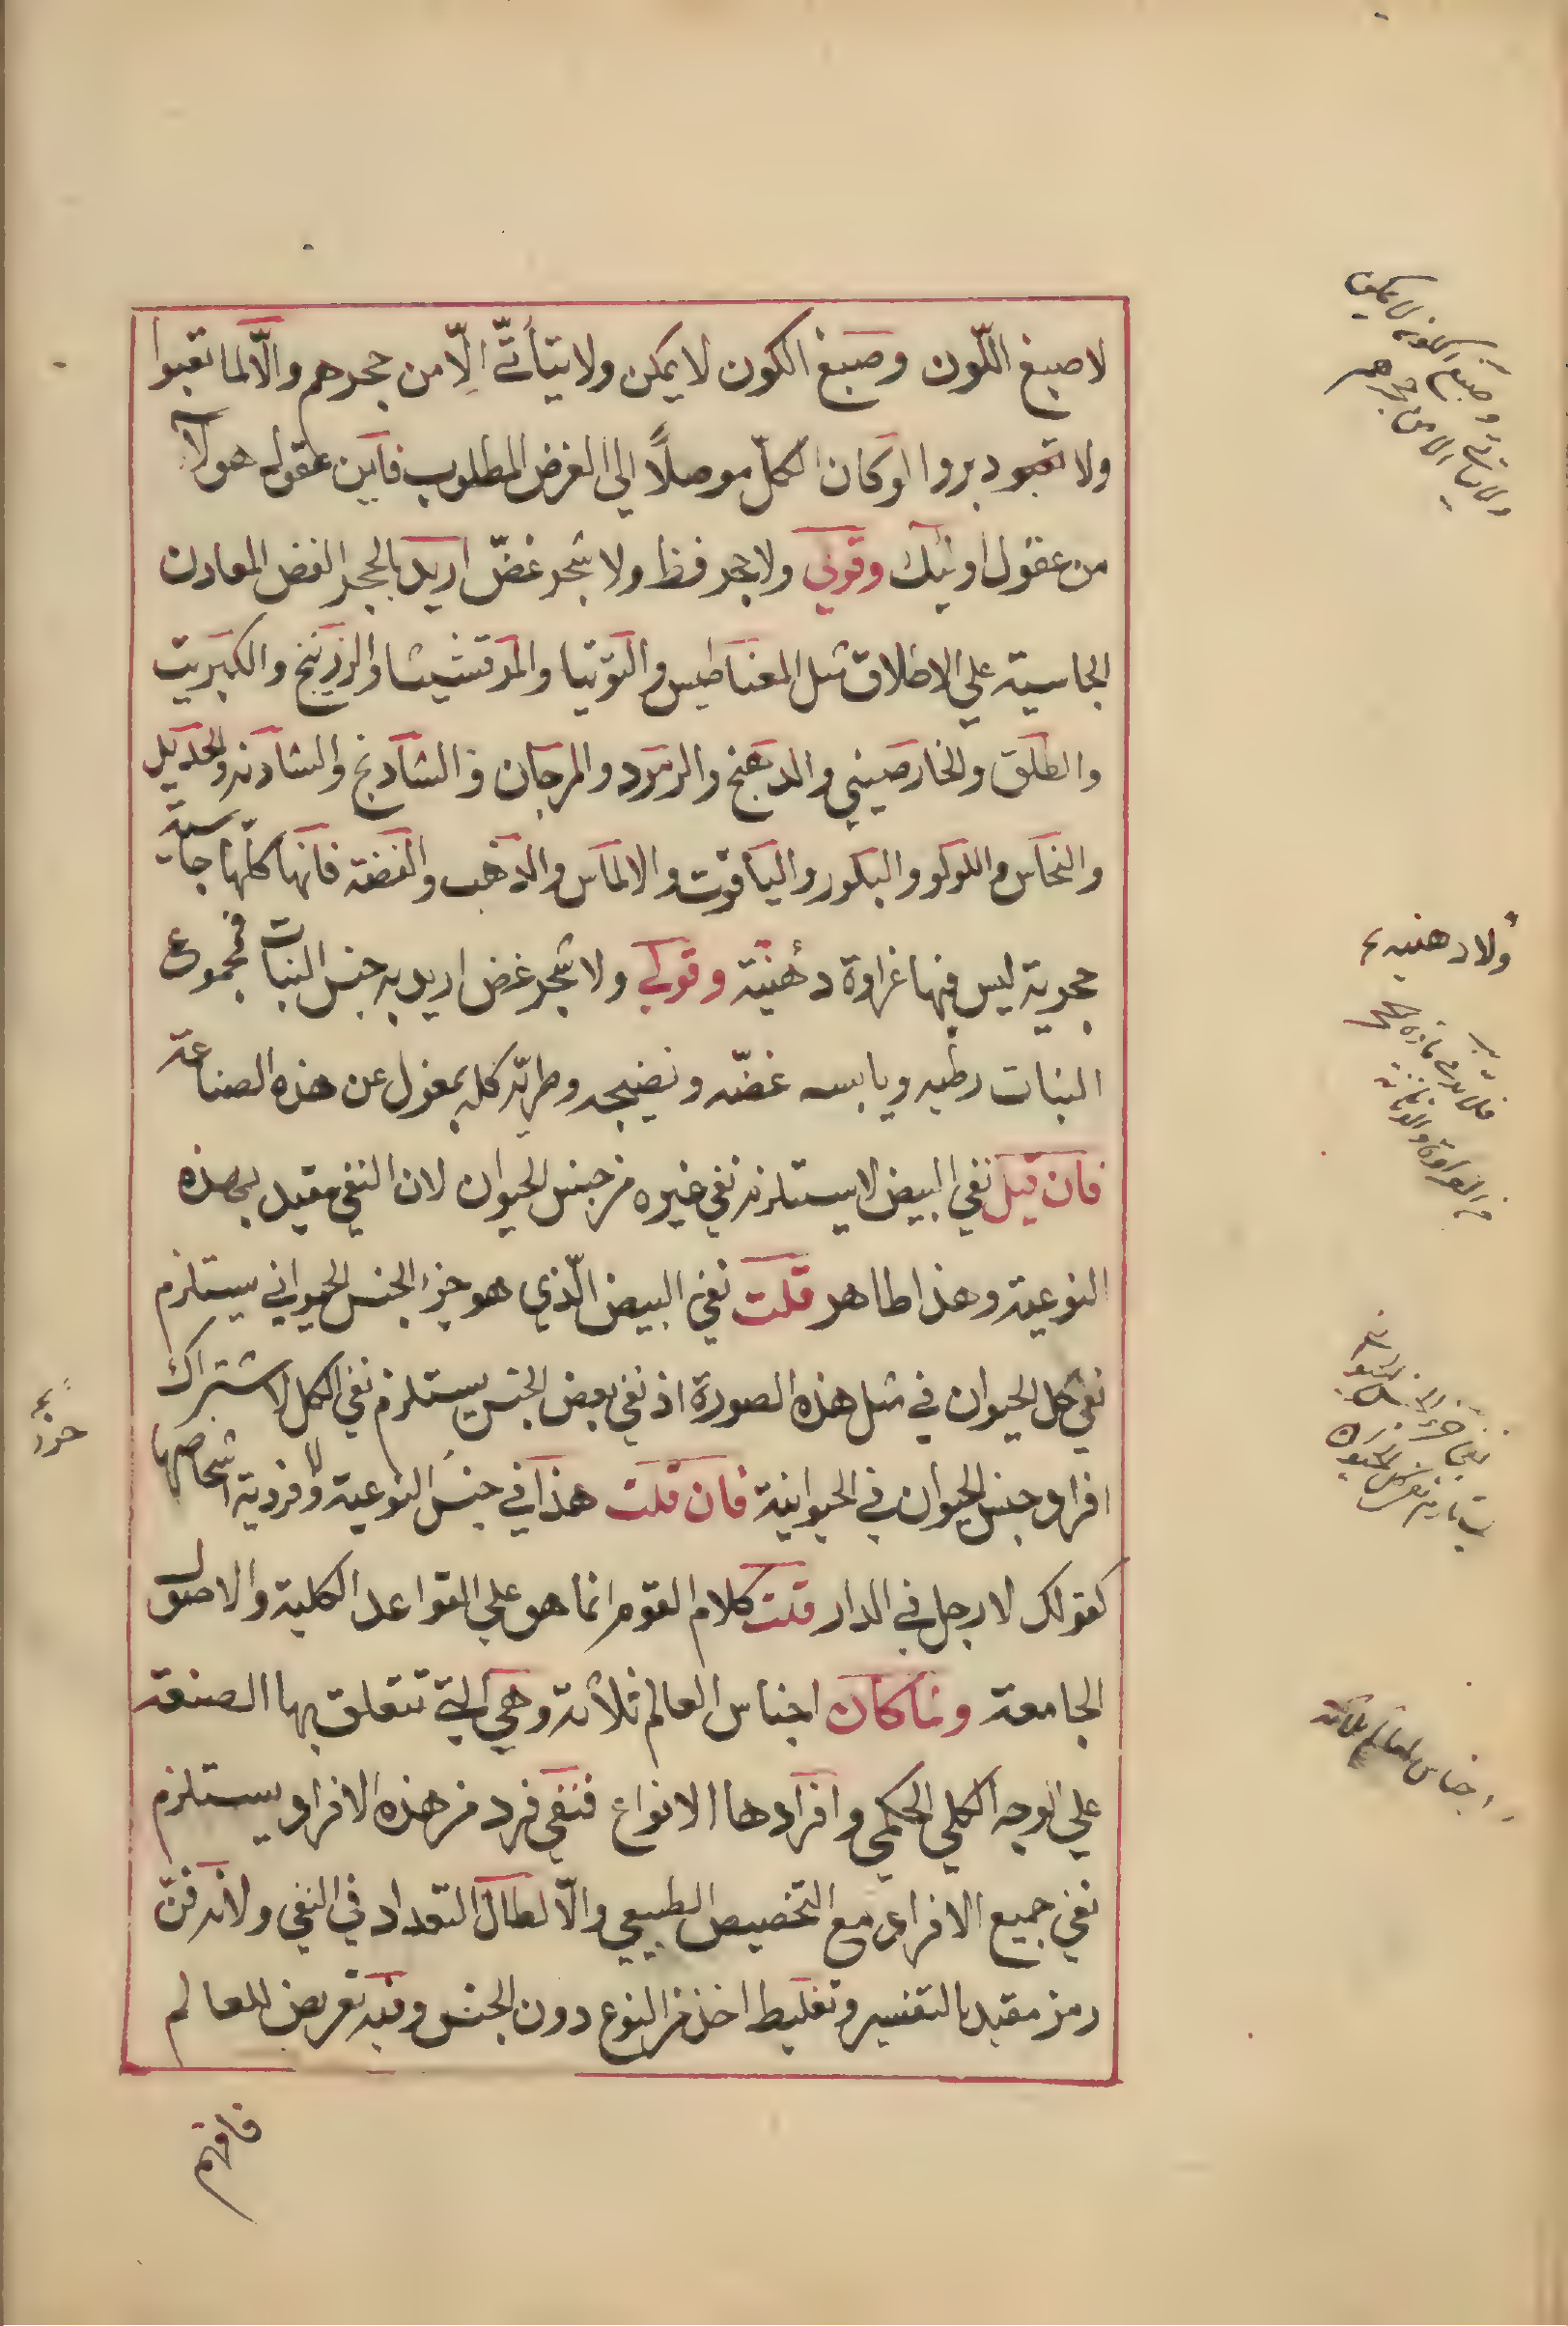 لا صبغ اللّون وصبغ الكون لا يمكن ولا يتأتّي الّا من حجرهم والّا لما تعبوا
ولا دبروا او كان الكلّ موصلاً الي الغرض المطلوب فأين عقول هولآ
من عقول اوليك وقولي ولا حجر فظ ولا شجر غضّ اريد بالحجر الفض المعادن
الجاسية علي الاطلاق مثل المغناطيس والتوتيا والمرقشيشا والزرنيخ والكبريت
والطلق والخارصيني والدهنج والزمرد والمرجان والشادنج والشادنه والحديد
والنحاس واللولو والبلور والياقوت والالماس والذهب والفضة فانها كلّها جاسية
حجرية ليس فيها غراوة دهنية وقولي ولا شجر غض اريد به جنس النبات فمجموع
النبات رطبه ويابسه غضّه ونضيجه وطريّه كله بمعزل عن هذه الصناعة
فان قيل نفي البيض لا يستلزم نفي غيره من جنس الحيوان لان النفي مقيد بهذه
النوعية وهذا ظاهر قلت نفي البيض الّذي هو جزء الجنس الحيواني يستلزم
نفي كل الحيوان في مثل هذه الصورة اذ نفي بعض الجنس يستلزم نفي الكل لاشتراك
افراد جنس الحيوان في الحيوانية فان قلت هذا في جنس النوعية ولا فردية اشخاصها
كقولك لا رجل في الدار قلت كلام القوم انما هو علي القواعد الكلية والاصول
الجامعة ولما كان اجناس العالم ثلاثة وهي الّتي تتعلق بها الصنعة
علي الوجه الكلي الحكمي وافرادها الانواع فنفي فرد من هذه الافراد يستلزم
نفي جميع الافراد مع التخصيص الطبيعي والّا لطال التعداد في النفي ولانه فنّ
رمز مقيد بالتفسير وتغليط اخذ من النوع دون الجنس وفيه تعريض للعالم
فافهم
وصبغ الكون لا يمكن
ولا يتاتي الا من حجرهم
ولا دهنية
نفي جزء الجنس الحيواني
يستلزم نفي كل الحيوان
اجناس العالم ثلاثة